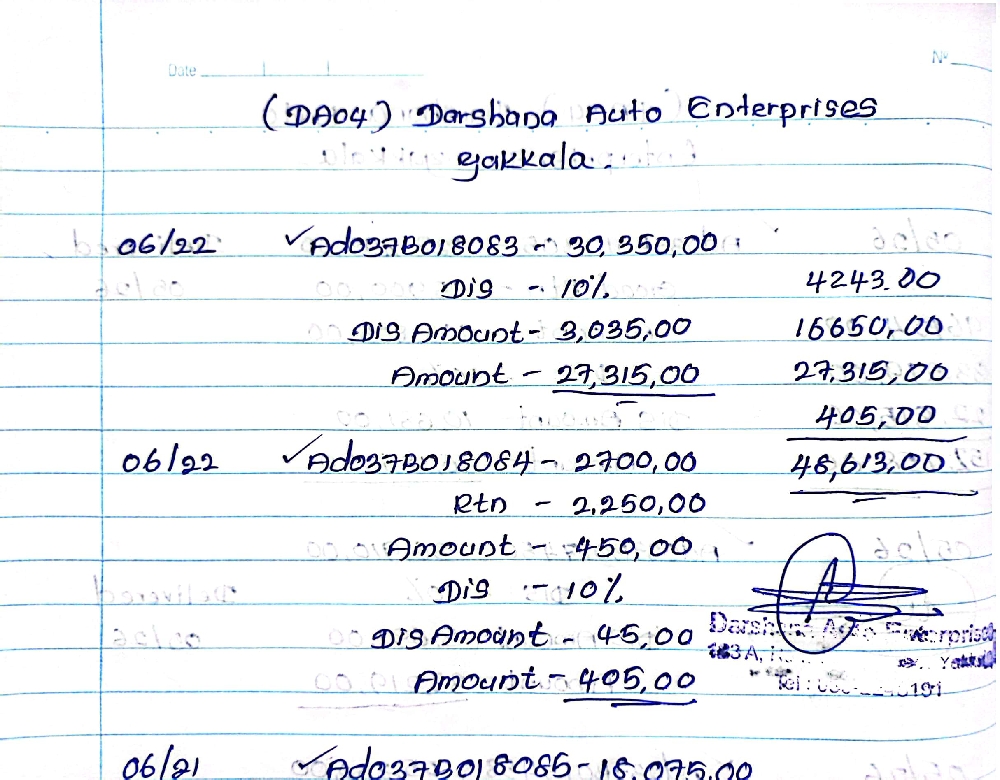 Date
No
(DA04) Darshana Auto Enterprises
yakkala.
06/22 ✓Ado37B018083 - 30,350,00
Dis - 10% 4243.00
Dis Amount - 3,035,00 16650,00
Amount - 27,315,00 27,315,00
405,00
06/22 ✓Ado37B018084 - 2700,00 48,613,00
Rtn - 2,250,00
Amount - 450,00
Dis - 10%
Dis Amount - 45,00
Darshana Auto Enterprises
Amount - 405,00
Tel :
06/21 ✓Ado37B018085 - 18,075,00